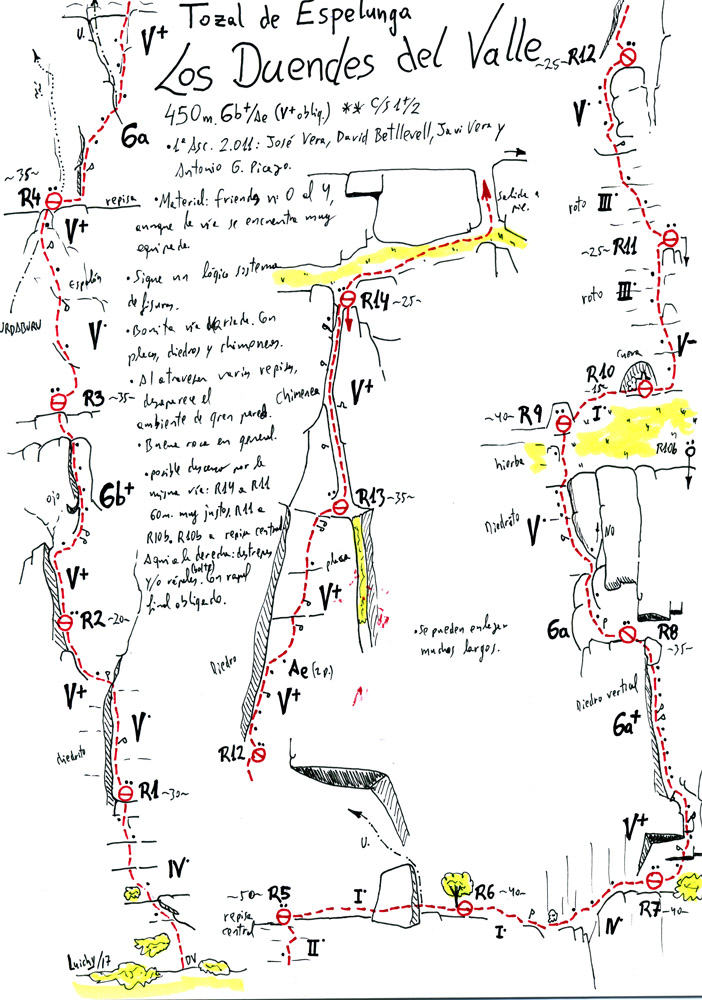 Tozal de Espelunga
Los Duendes del Valle
450m. 6b+/Ae (V+ oblig.) ** C/S 1+/2
• 1ª Asc. 2.011: José Vera, David Betllevell, Javi Vera y
Antonio G. Picazo.
• Material: friends nº 0 al 4,
aunque la vía se encuentra muy
equipada.
• Sigue un lógico sistema
de fisuras.
• Bonita vía variada. Con
placas, diedros y chimeneas.
• Al atravesar varias repisas,
desaparece el
ambiente de gran pared.
• Buena roca en general.
• posible descenso por la
misma vía: R14 a R11
60m. muy justos, R11 a
R10b, R10b a repisa central
Aquí a la derecha: destrepes
y/o rápeles (bolts). Con rapel
final obligado.
• Se pueden enlazar
muchos largos.
U.
V+
6a
~35~
R4
repisa
V+
Espolón
V·
R3
~35~
6b+
ojo
V+
R2
~20~
V+
V·
diedrito
R1
~30~
IV·
Luichy/17
DV
salida a
pie.
R14
~25~
Chimenea
V+
R13
~35~
placa
V+
Diedro
Ae (2p.)
V+
R12
U.
~50~
R5
repisa
central
II·
I·
R6
~40~
I·
IV·
R7
~40~
V+
6a+
Diedro vertical
R8
~35~
6a
NO
V·
Diedrito
hierba
~40~
R9
I·
R10b
R10
~15~
cueva
V-
roto
III·
~25~
R11
roto
III·
V·
~25~
R12